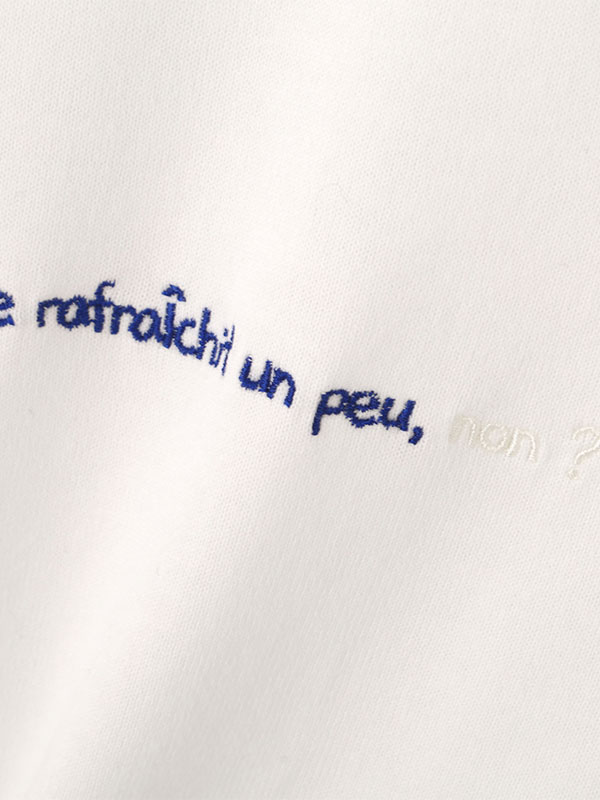 e rafraîchit un peu, non ?